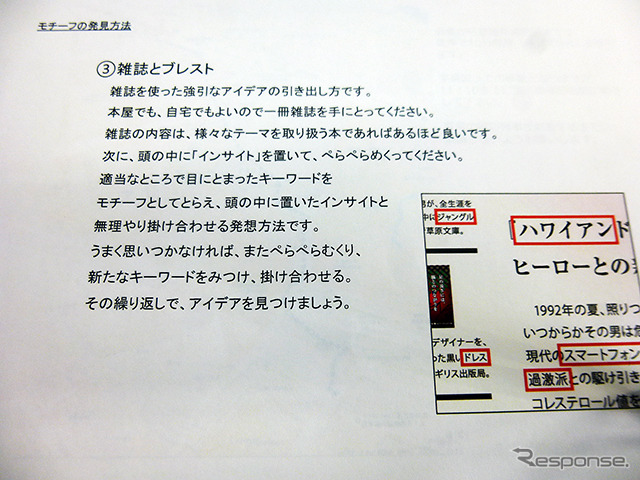 モチーフの発見方法
③雑誌とブレスト
雑誌を使った強引なアイデアの引き出し方です。
本屋でも、自宅でもよいので一冊雑誌を手にとってください。
雑誌の内容は、様々なテーマを取り扱う本であればあるほど良いです。
次に、頭の中に「インサイト」を置いて、ぺらぺらめくってください。
適当なところで目にとまったキーワードを
モチーフとしてとらえ、頭の中に置いたインサイトと
無理やり掛け合わせる発想方法です。
うまく思いつかなければ、またぺらぺらむくり、
新たなキーワードをみつけ、掛け合わせる。
その繰り返しで、アイデアを見つけましょう。
が、全生涯を
中にジャングル
草原文庫。
デザイナーを、
った黒いドレス
ギリス出版局。
「ハワイアンド
ヒーローとの
1992年の夏、照りつ
いつからかその男は危
現代のスマートフォン
過激派との駆け引き
コレステロール値を
Response.